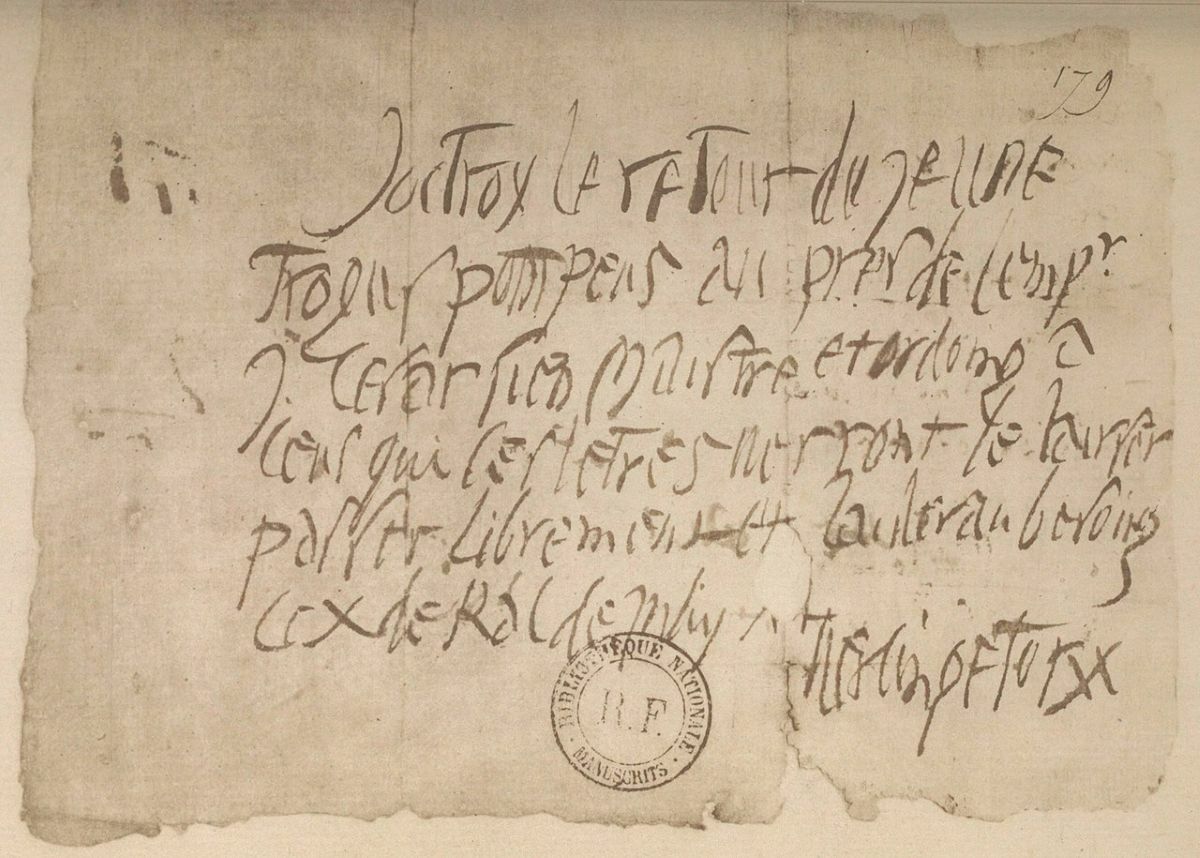 179
Joctroy le retour du jeune
Trogus pompeus au pres de lempr
J. Cesar sien Maistre et ordoing a
ceus qui ces letres verront le laisser
passer librement et laider au besoing
ce x de Kal de may.
BIBLIOTHEQUE NATIONALE
R.F.
MANUSCRITS